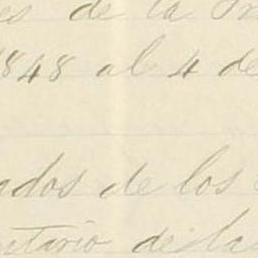 es de la
1848 al 4 de
ados de los
ntario de la